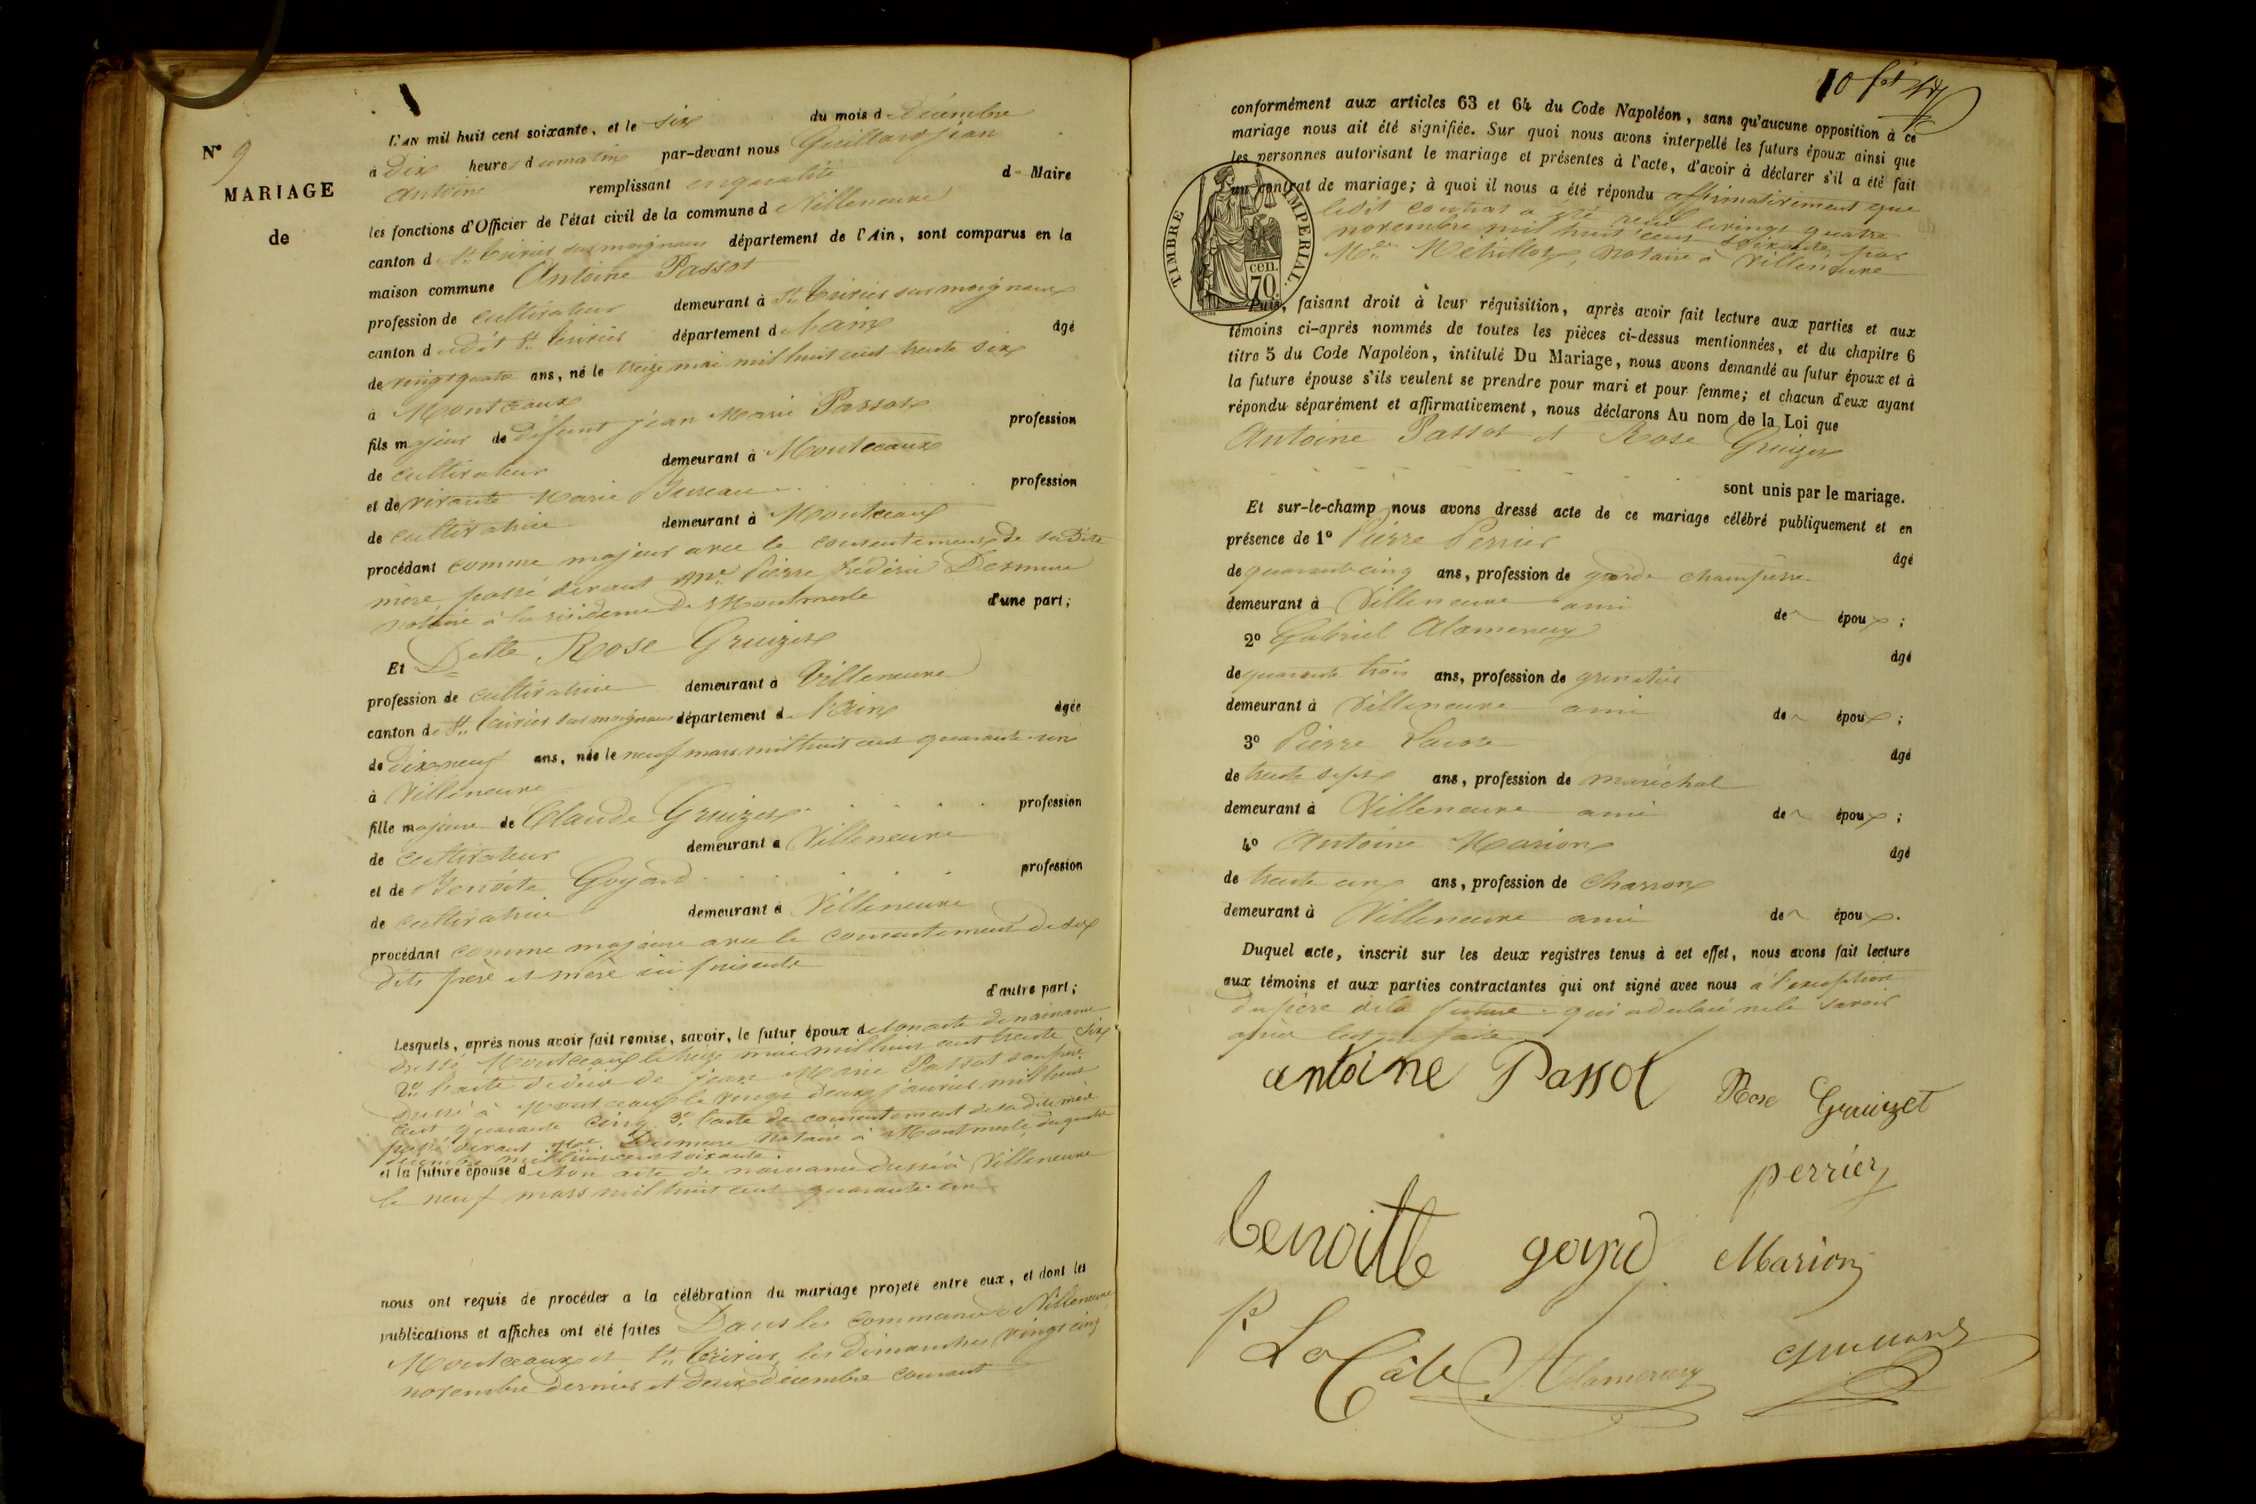 N° 9
MARIAGE
de
L'AN mil huit cent soixante, et le six du mois d décembre
à dix heures d umatin par-devant nous Guillard jéan
Antoine remplissant enqualité d Maire
les fonctions d'Officier de l'état civil de la commune d e Villeneuve
canton d e St trivier sur moignans département de l'Ain, sont comparus en la
maison commune Antoine Passot
profession de cultivateur demeurant à St trivier sur moignans
canton d udit St trivier département d e l'ain âgé
de vingt quatre ans, né le treize mai mil huit cent trente six
à Montceaux
fils majeur de défunt jéan Marie Passot profession
de cultivateur demeurant à Montceaux
et de vivante Marie profession
de cultivatrice demeurant à Montceaux
procédant comme majeur avec le consentement de sadite
mère passé devant Me Pierre fréderic
notaire à la résidence de Montmerle d'une part;
Et Delle Rose Gruizet
profession de cultivatrice demeurant à Villeneuve
canton de St trivier sur moignans département d e l'Ain âgée
de dix neuf ans, née le neuf mars mil huit cent quarante un
à Villeneuve
fille majeure de Claude Gruizet profession
de cultivateur demeurant à Villeneuve
et de Benoite Goyard profession
de cultivatrice demeurant à Villeneuve
procédant comme majeure avec le consentement de ses
dits père et mère ici présents
d'autre part;
Lesquels, après nous avoir fait remise, savoir, le futur époux de son acte de naissance
dressé Montceaux le treize mai mil huit cent trente six
2° l'acte de décès de jean Marie Passot son père
dressé à Montceaux le vingt deux janvier mil huit
cent quarante cinq 3° l'acte de consentement de sadite mère
passé devant notaire à Montmerle du quatre
décembre mil huit cent soixante.
et la future épouse d e son acte de naissance dressé à Villeneuve
le neuf mars mil huit cent quarante un
nous ont requis de procéder a la célébration du mariage projeté entre eux, et dont les
publications et affiches ont été faites Dans les communes de Villeneuve
Montceaux et St trivier, les dimanches vingt cinq
novembre dernier et deux décembre courant
conformément aux articles 63 et 64 du Code Napoléon, sans qu'aucune opposition à ce
mariage nous ait été signifiée. Sur quoi nous avons interpellé les futurs époux ainsi que
les personnes autorisant le mariage et présentes à l'acte, d'avoir à déclarer s'il a été fait
un contrat de mariage; à quoi il nous a été répondu affirmativement que
ledit contrat a été reçu le vingt quatre
novembre mil huit cent soixante, par
Me notaire à Villeneuve
TIMBRE IMPERIAL.
cen.
70.
Puis, faisant droit à leur réquisition, après avoir fait lecture aux parties et aux
témoins ci-après nommés de toutes les pièces ci-dessus mentionnées, et du chapitre 6
titre 5 du Code Napoléon, intitulé Du Mariage, nous avons demandé au futur époux et à
la future épouse s'ils veulent se prendre pour mari et pour femme; et chacun d'eux ayant
répondu séparément et affirmativement, nous déclarons Au nom de la Loi que
Antoine Passot et Rose Gruizet
sont unis par le mariage.
Et sur-le-champ nous avons dressé acte de ce mariage célébré publiquement et en
présence de 1° Pierre Perrier âgé
de quarante cinq ans, profession de garde champêtre
demeurant à Villeneuve ami de époux;
2° Gabriel Alamercery âgé
de quarante trois ans, profession de
demeurant à Villeneuve ami de époux;
3° Pierre âgé
de trente sept ans, profession de maréchal
demeurant à Villeneuve ami de époux;
4° Antoine Marion âgé
de trente cinq ans, profession de charron
demeurant à Villeneuve ami de époux.
Duquel acte, inscrit sur les deux registres tenus à cet effet, nous avons fait lecture
aux témoins et aux parties contractantes qui ont signé avec nous à l'exception
du père de la future qui a déclaré ne le savoir
antoine Passot Rose Gruizet
perrier
benoitte goyrd Marion
P. La Alamercery